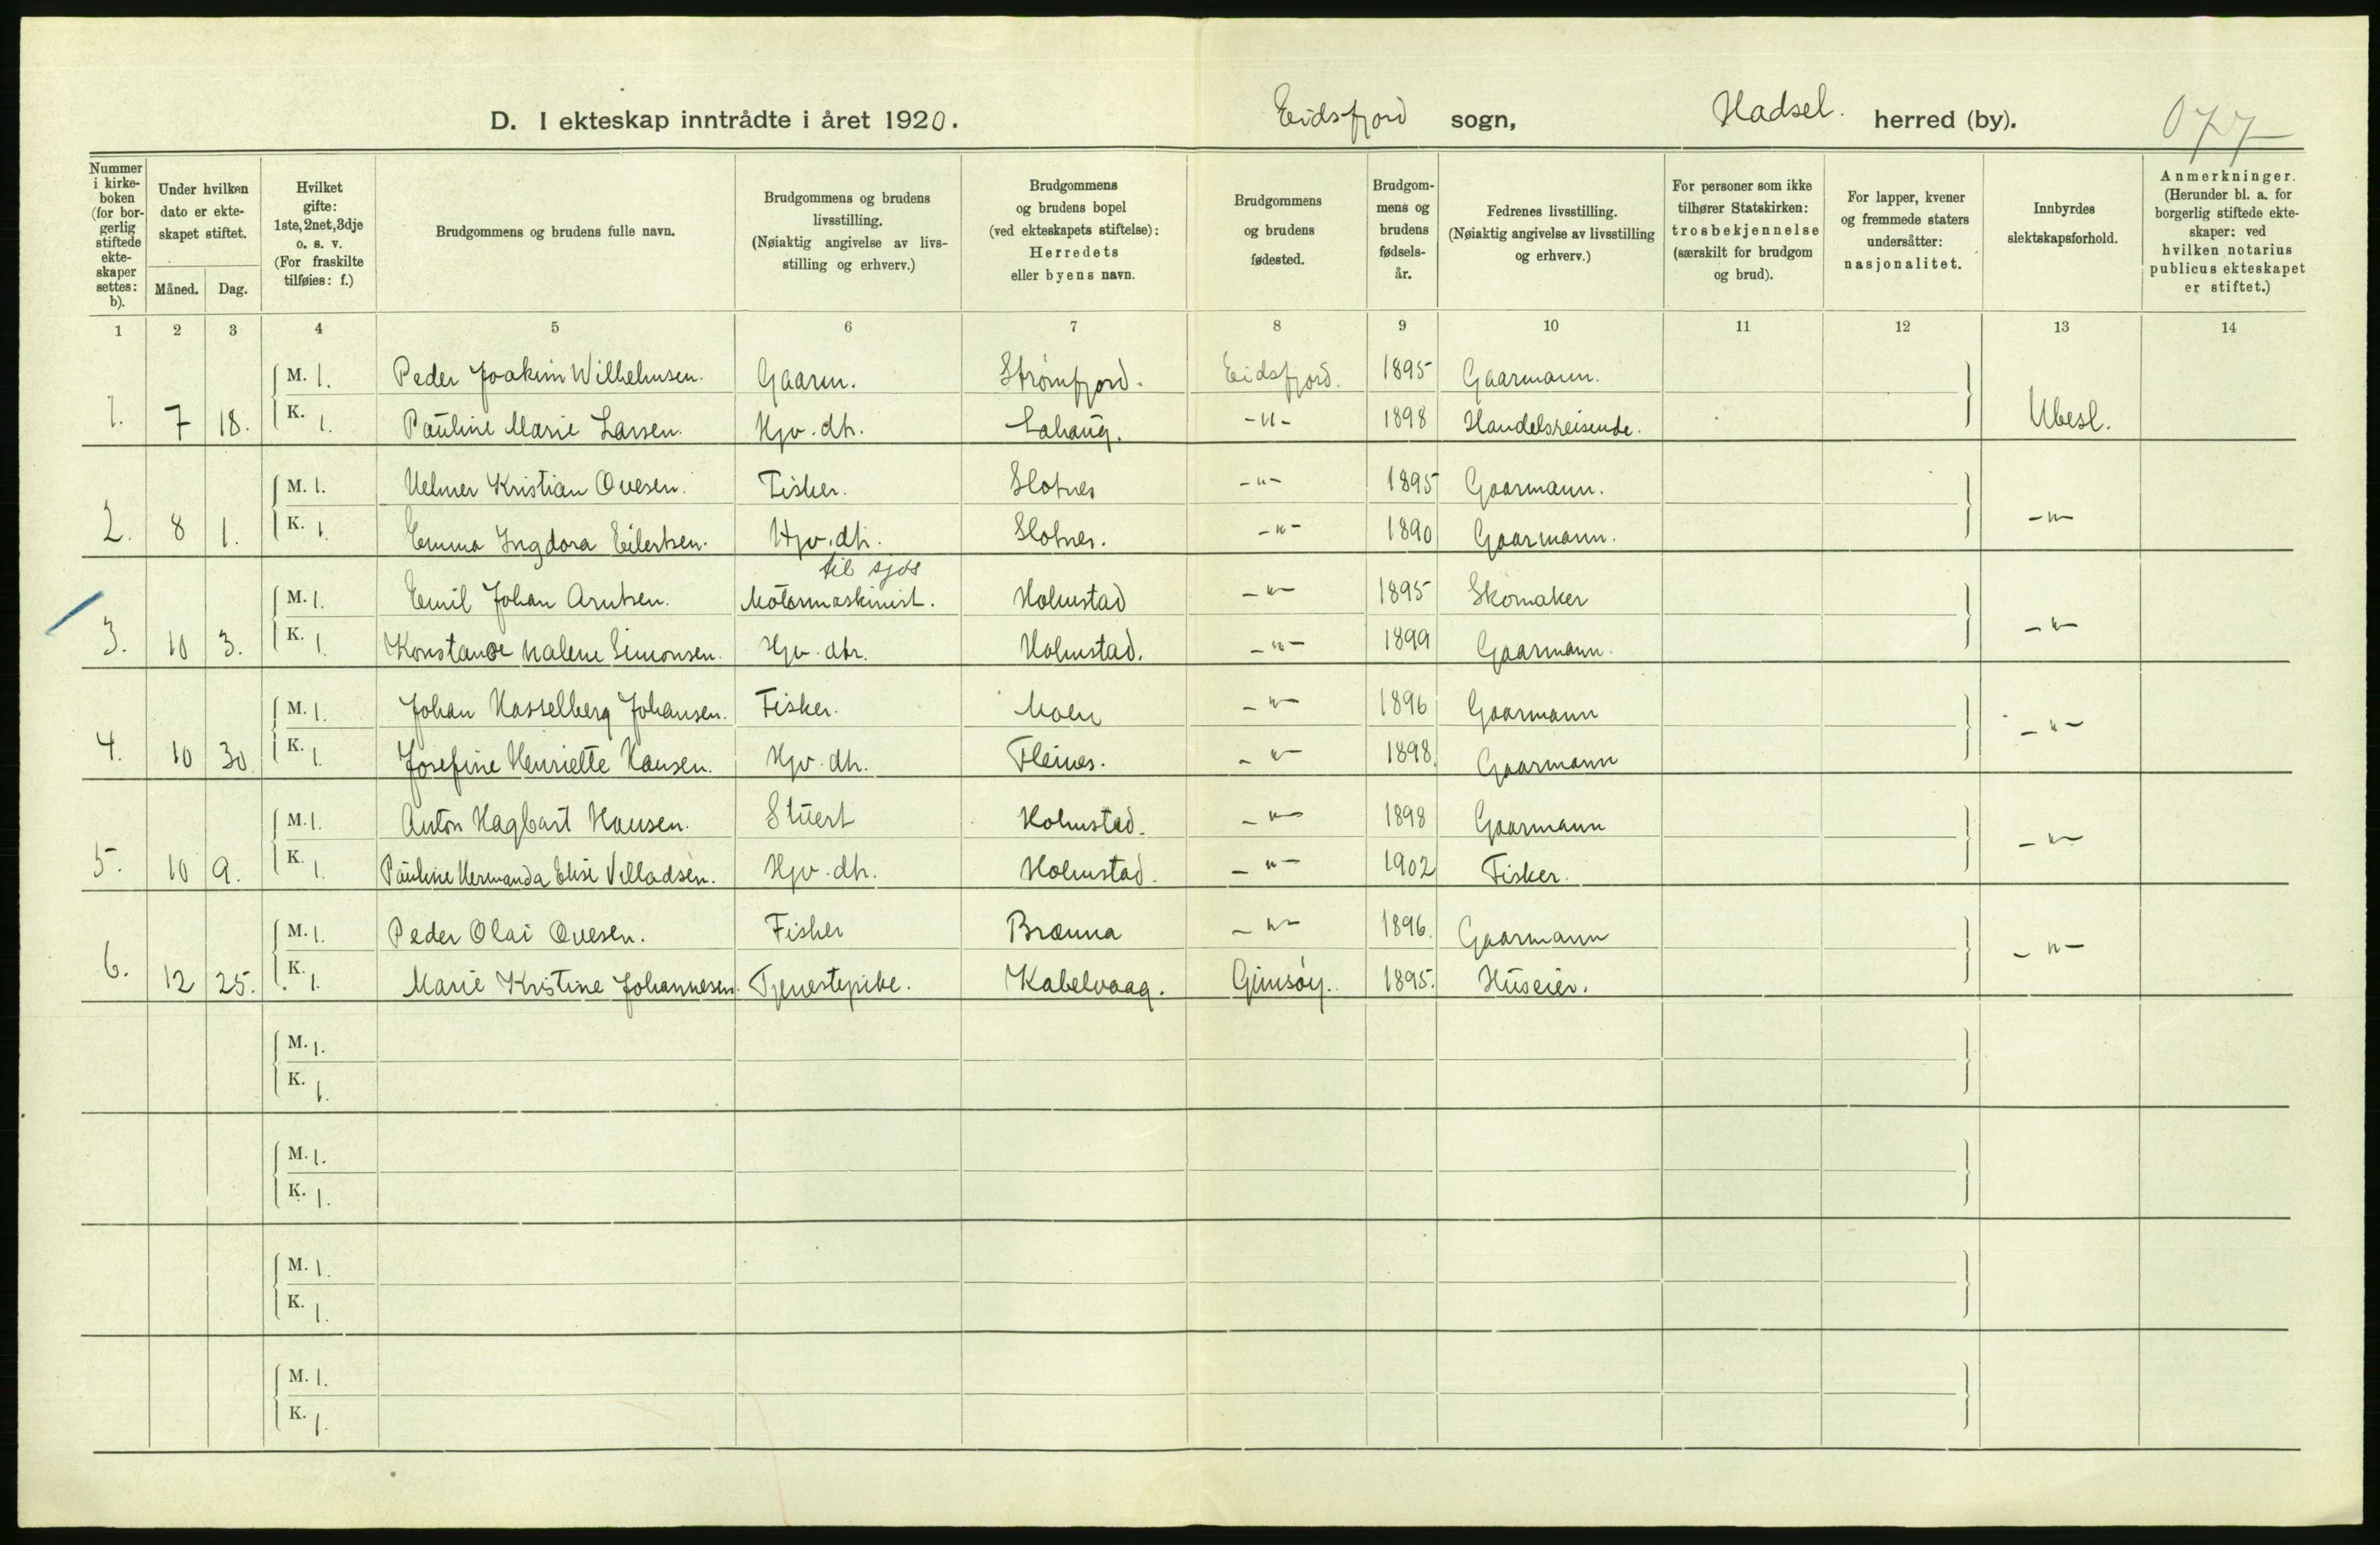 D. I ekteskap inntrådte i året 1920. Eidsfjord sogn, Hadsel. herred (by). 077
Nummer i kirke-boken (for bor-gerlig stiftede ekte-skaper settes: b).
Under hvilken dato er ekte-skapet stiftet.
Måned. Dag.
Hvilket gifte: 1ste, 2net, 3dje o. s. v. (For fraskilte tilføies: f.)
Brudgommens og brudens fulle navn.
Brudgommens og brudens livsstilling. (Nøiaktig angivelse av livs-stilling og erhverv.)
Brudgommens og brudens bopel (ved ekteskapets stiftelse): Herredets eller byens navn.
Brudgommens og brudens fødested.
Brudgom-mens og brudens fødsels-år.
Fedrenes livsstilling. (Nøiaktig angivelse av livsstilling og erhverv.)
For personer som ikke tilhører Statskirken: trosbekjennelse (særskilt for brudgom og brud).
For lapper, kvener og fremmede staters undersåtter: nasjonalitet.
Innbyrdes slektskapsforhold.
Anmerkninger. (Herunder bl. a. for borgerlig stiftede ekte-skaper: ved hvilken notarius publicus ekteskapet er stiftet.)
1 2 3 4 5 6 7 8 9 10 11 12 13 14
M. 1. Peder Joakim Wilhelmsen. Gaarm. Strømfjord. Eidsfjord. 1895 Gaarmann.
1. 7 18. K. 1. Pauline Marie Larsen. Hjv. dtr. Lahaug. -"- 1898 Handelsreisende. Ubesl.
M. 1. Helmer Kristian Ovesen. Fisker. Slotnes -"- 1895 Gaarmann.
2. 8 1. K. 1. Emma Ingdora Eilertsen. Hjv. dtr. Slotnes. -"- 1890 Gaarmann. -"-
til sjøs
M. 1. Emil Johan Arntsen. Motormaskinist. Holmstad -"- 1895 Skomaker
3. 10 3. K. 1. Konstance Malene Simonsen. Hjv. dtr. Holmstad. -"- 1899 Gaarmann. -"-
M. 1. Johan Hasselberg Johansen. Fisker. Moen -"- 1896 Gaarmann
4. 10 30. K. 1. Josefine Henriette Hansen. Hjv. dtr. Fleines. -"- 1898. Gaarmann -"-
M. 1. Anton Hagbart Hansen. Stuert Holmstad. -"- 1898 Gaarmann
5. 10 9. K. 1. Pauline Hermanda Elise Villadsen. Hjv. dtr. Holmstad. -"- 1902 Fisker. -"-
M. 1. Peder Olai Ovesen. Fisker Brænna -"- 1896. Gaarmann
6. 12 25. K. 1. Marie Kristine Johannesen. Tjenestepike. Kabelvaag. Gimsøy. 1895. Huseier. -"-
M. 1.
K. 1.
M. 1.
K. 1.
M. 1.
K. 1.
M. 1.
K. 1.